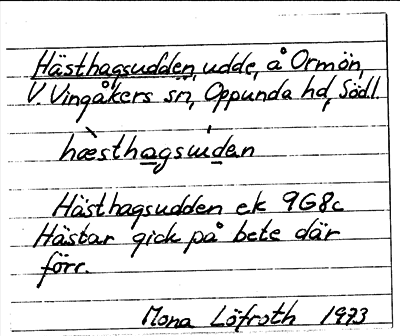 Hästhagsudden, udde, å Ormön,
V. Vingåkers sn, Oppunda hd, Södl.
hæ̀sthagsụ́dən
Hästhagsudden ek 9G8c
Hästar gick på bete där
förr.
Mona Löfroth 1973